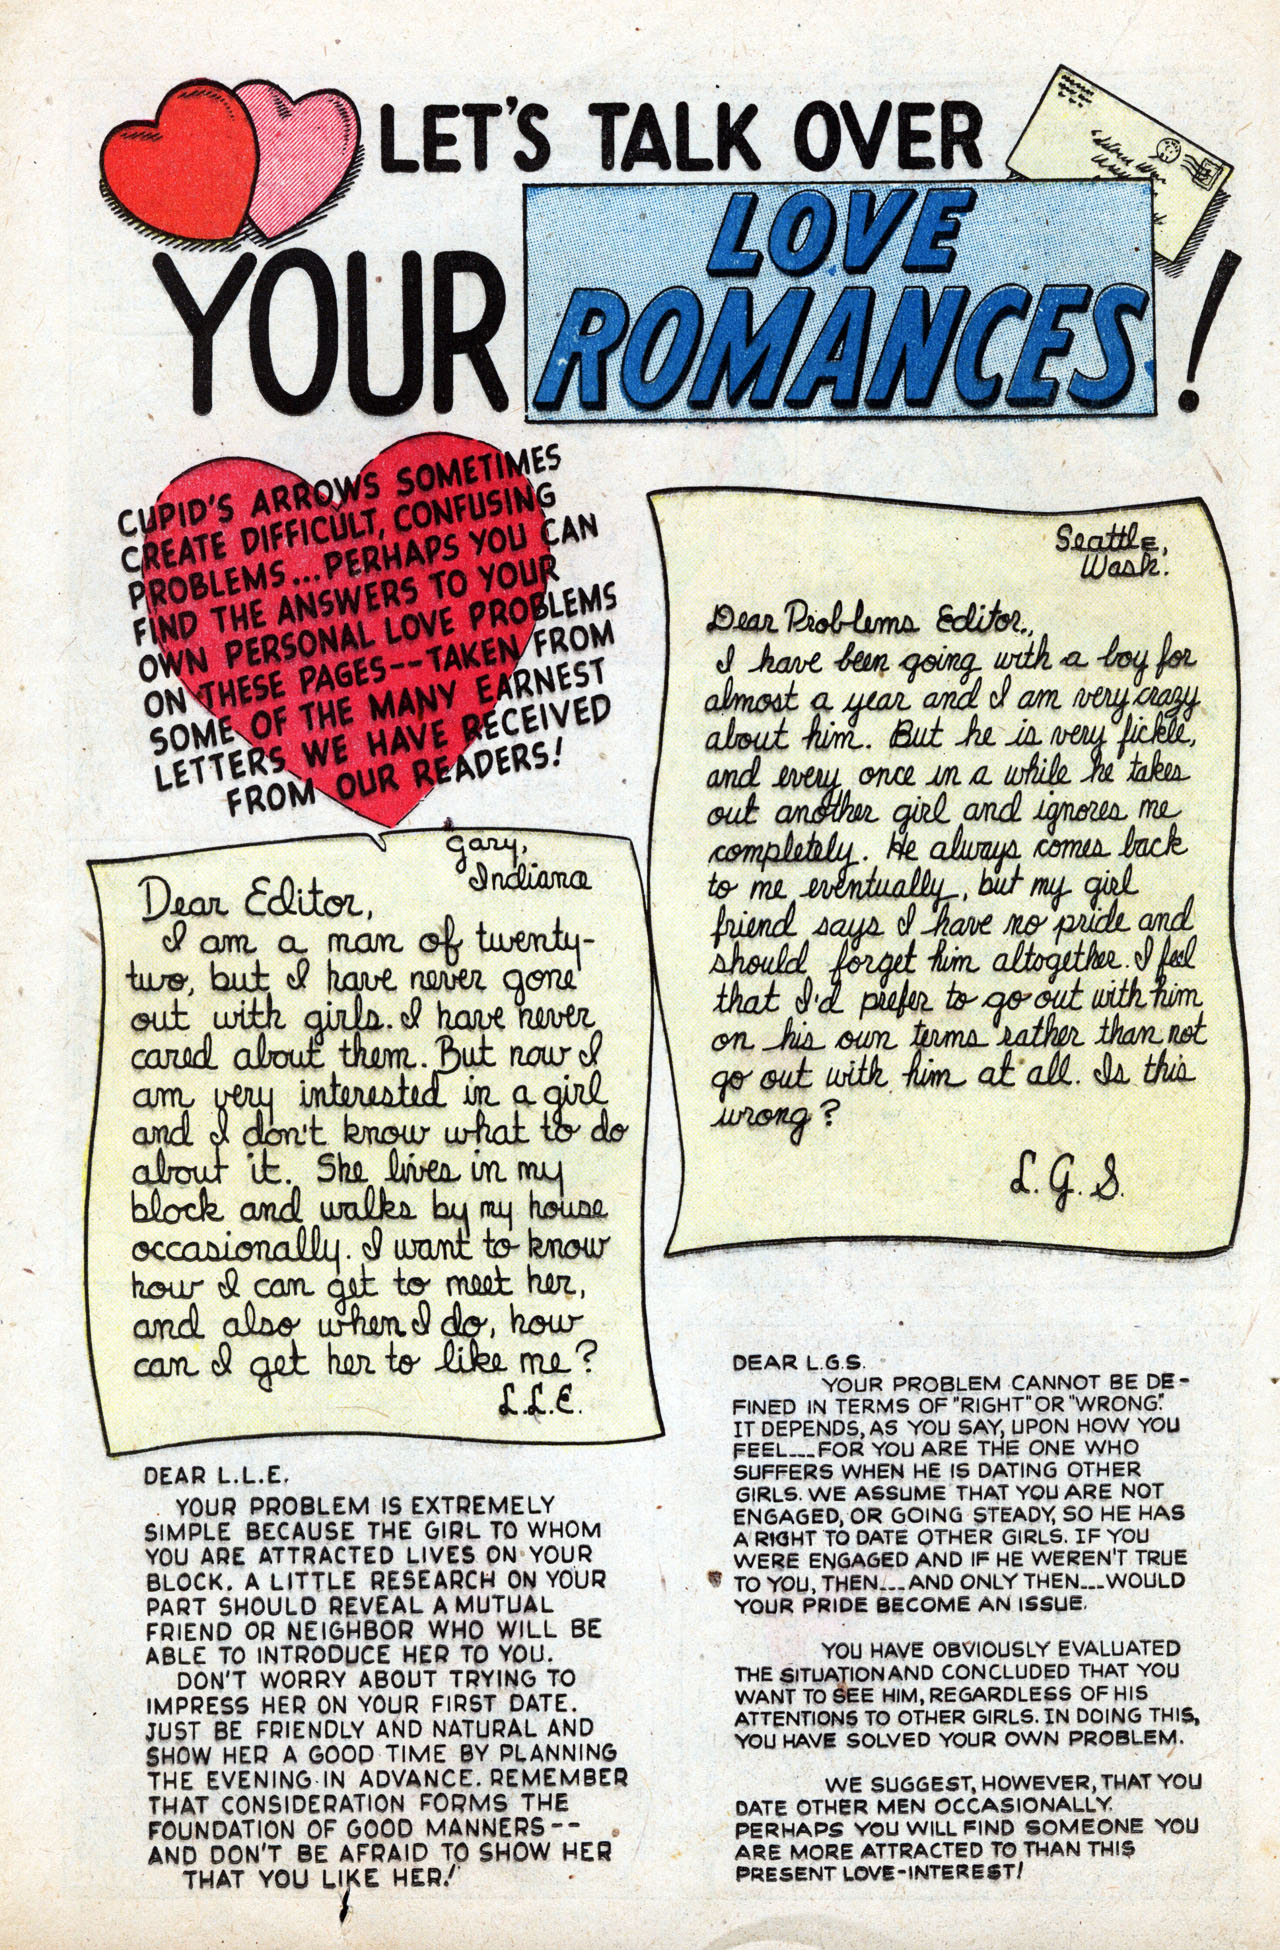 LET'S TALK OVER
YOUR
LOVE
ROMANCES!
CUPID'S ARROWS SOMETIMES
CREATE DIFFICULT, CONFUSING
PROBLEMS...PERHAPS YOU CAN
FIND THE ANSWERS TO YOUR
OWN PERSONAL LOVE PROBLEMS
ON THESE PAGES--TAKEN FROM
SOME OF THE MANY EARNEST
LETTERS WE HAVE RECEIVED
FROM OUR READERS!
Gary,
Indiana
Dear Editor,
I am a man of twenty-
two, but I have never gone
out with girls. I have never
cared about them. But now I
am very interested in a girl
and I don't know what to do
about it. She lives in my
block and walks by my house
occasionally. I want to know
how I can get to meet her,
and also when I do, how
can I get her to like me?
L.L.E.
DEAR L.L.E.
YOUR PROBLEM IS EXTREMELY
SIMPLE BECAUSE THE GIRL TO WHOM
YOU ARE ATTRACTED LIVES ON YOUR
BLOCK. A LITTLE RESEARCH ON YOUR
PART SHOULD REVEAL A MUTUAL
FRIEND OR NEIGHBOR WHO WILL BE
ABLE TO INTRODUCE HER TO YOU.
DON'T WORRY ABOUT TRYING TO
IMPRESS HER ON YOUR FIRST DATE.
JUST BE FRIENDLY AND NATURAL AND
SHOW HER A GOOD TIME BY PLANNING
THE EVENING IN ADVANCE. REMEMBER
THAT CONSIDERATION FORMS THE
FOUNDATION OF GOOD MANNERS--
AND DON'T BE AFRAID TO SHOW HER
THAT YOU LIKE HER!
Seattle,
Wash.
Dear Problems Editor,
I have been going with a boy for
almost a year and I am very crazy
about him. But he is very fickle,
and every once in a while he takes
out another girl and ignores me
completely. He always comes back
to me eventually, but my girl
friend says I have no pride and
should forget him altogether. I feel
that I'd prefer to go out with him
on his own terms rather than not
go out with him at all. Is this
wrong?
L.G.S.
DEAR L.G.S.
YOUR PROBLEM CANNOT BE DE-
FINED IN TERMS OF "RIGHT" OR "WRONG".
IT DEPENDS, AS YOU SAY, UPON HOW YOU
FEEL...FOR YOU ARE THE ONE WHO
SUFFERS WHEN HE IS DATING OTHER
GIRLS. WE ASSUME THAT YOU ARE NOT
ENGAGED, OR GOING STEADY, SO HE HAS
A RIGHT TO DATE OTHER GIRLS. IF YOU
WERE ENGAGED AND IF HE WEREN'T TRUE
TO YOU, THEN...AND ONLY THEN...WOULD
YOUR PRIDE BECOME AN ISSUE.
YOU HAVE OBVIOUSLY EVALUATED
THE SITUATION AND CONCLUDED THAT YOU
WANT TO SEE HIM, REGARDLESS OF HIS
ATTENTIONS TO OTHER GIRLS. IN DOING THIS,
YOU HAVE SOLVED YOUR OWN PROBLEM.
WE SUGGEST, HOWEVER, THAT YOU
DATE OTHER MEN OCCASIONALLY.
PERHAPS YOU WILL FIND SOMEONE YOU
ARE MORE ATTRACTED TO THAN THIS
PRESENT LOVE-INTEREST!